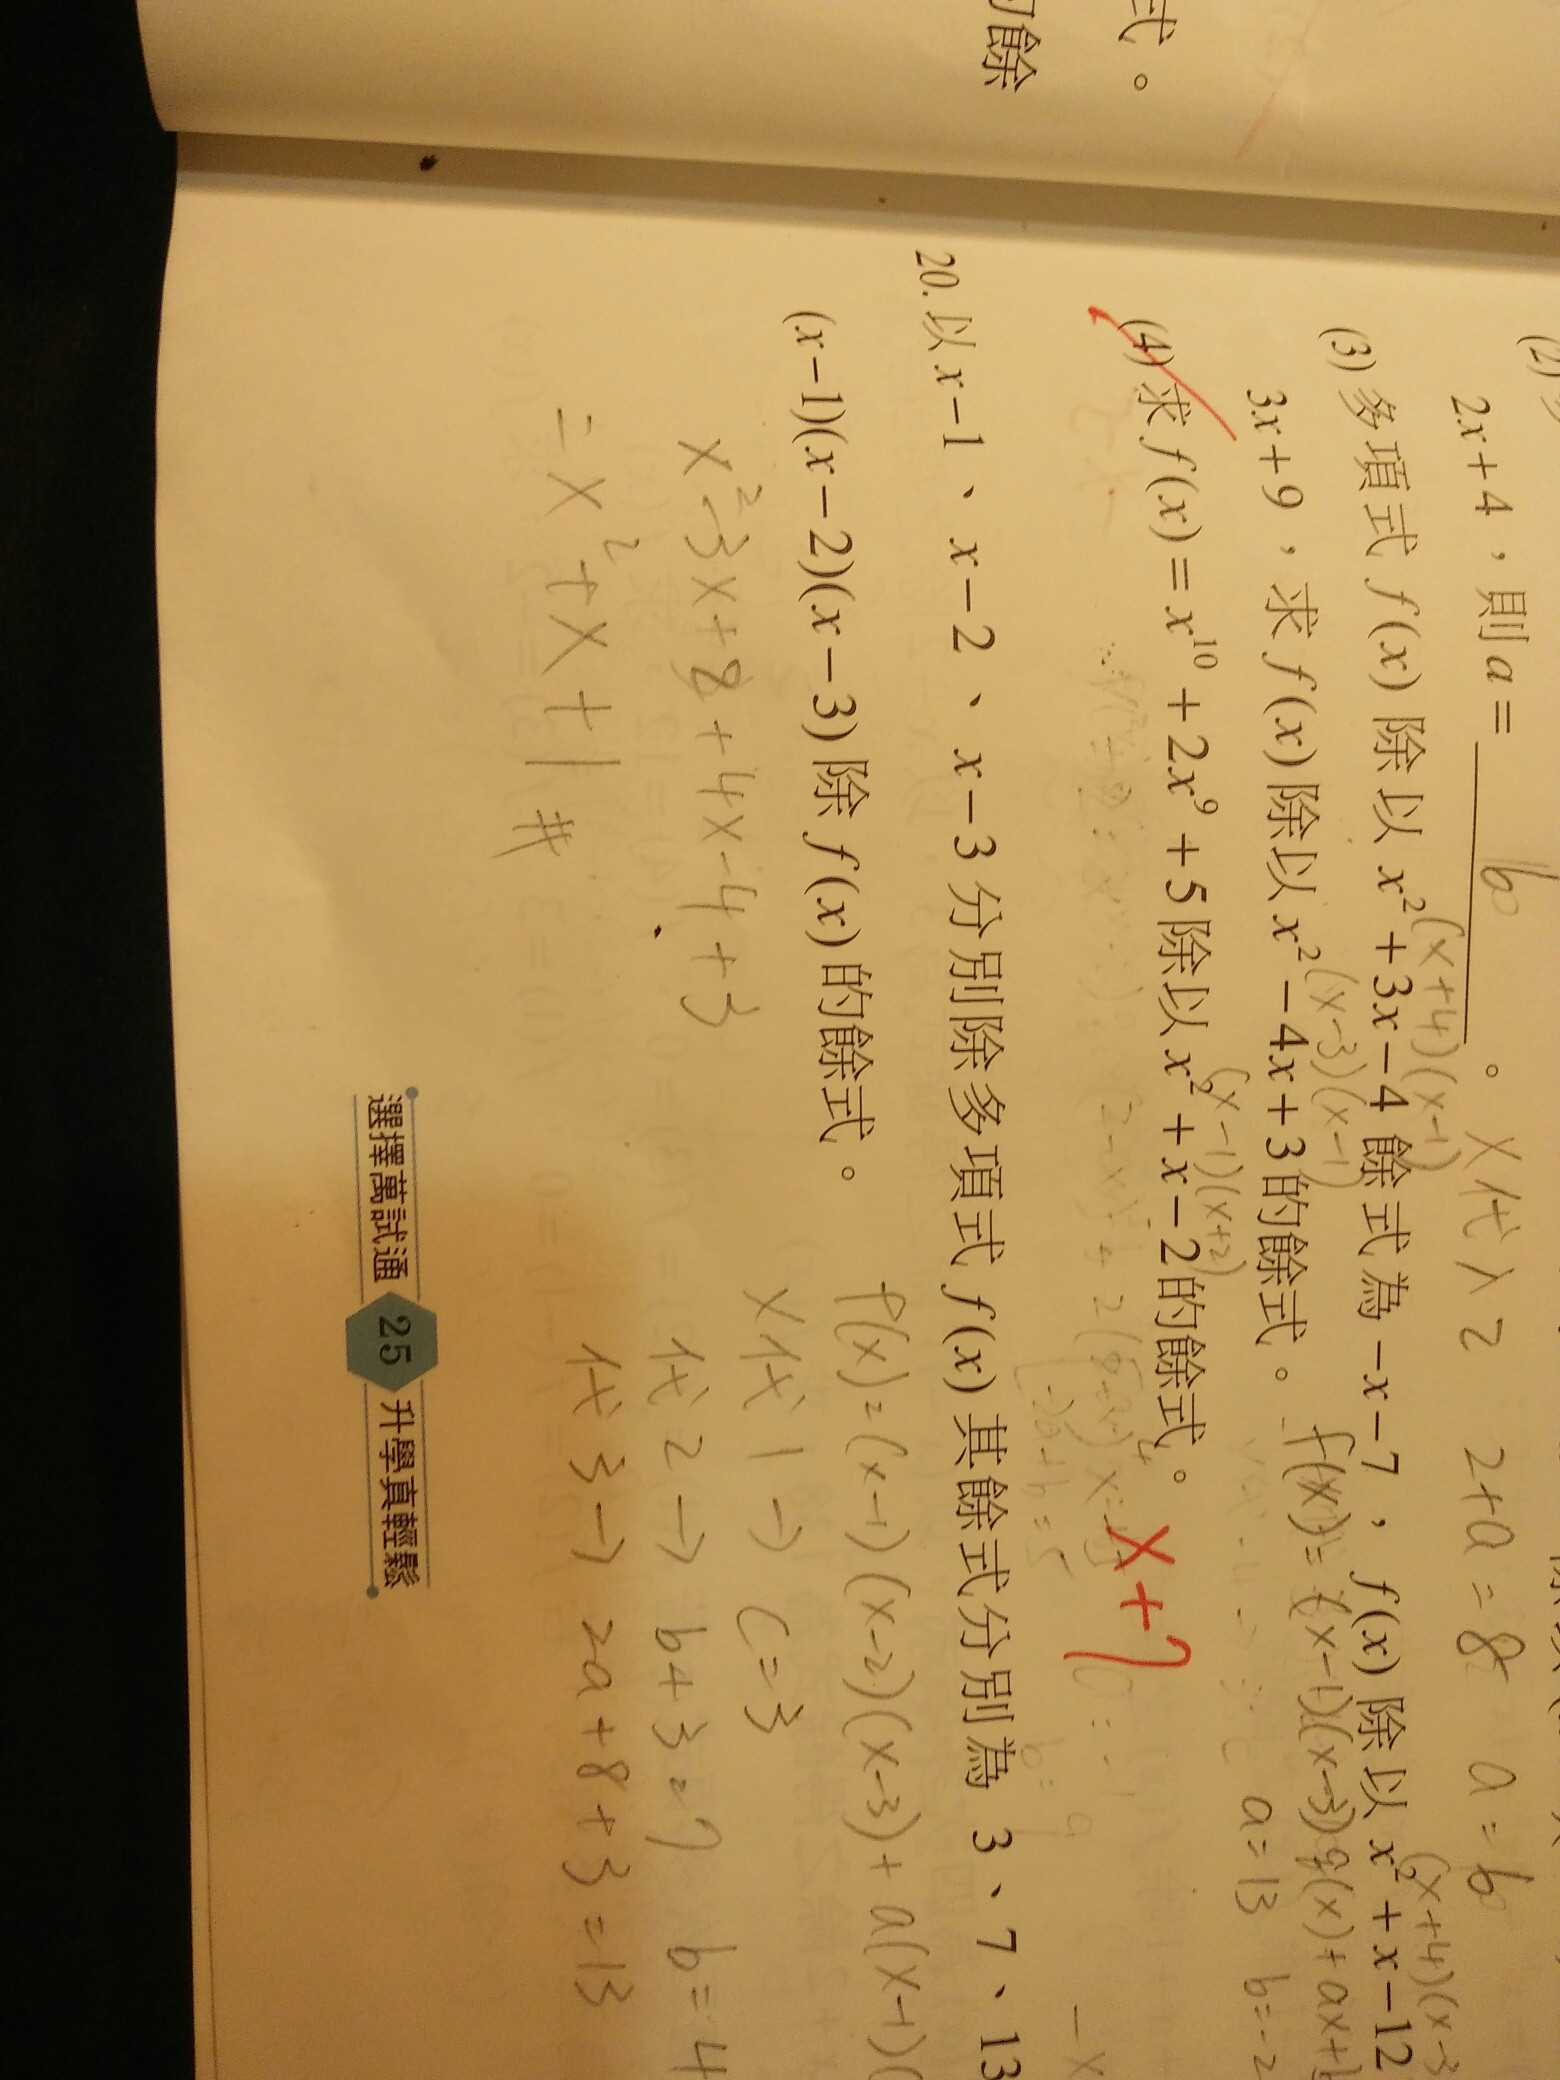 式。
的餘
2x+4，則 a= 6 。 x代入2 2+a=8 a=6
(x+4)(x-1) (x+4)(x-3
(3) 多項式 f(x) 除以 x²+3x-4 餘式為 -x-7，f(x) 除以 x²+x-12
(x-3)(x-1)
3x+9，求 f(x) 除以 x²-4x+3 的餘式。
a=13 b=-2
(x-1)(x+2)
(4) 求 f(x)=x¹⁰+2x⁹+5 除以 x²+x-2 的餘式。 x+7
20. 以 x-1、x-2、x-3 分別除多項式 f(x) 其餘式分別為 3、7、13
(x-1)(x-2)(x-3) 除 f(x) 的餘式。
f(x)=(x-1)(x-2)(x-3)+a(x-1)(
x²-3x+8+4x-4+3
=x²+x+1 #
x代1→ c=3
代2→ b+3=7 b=4
代3→ 2a+8+3=13
選擇萬試通 25 升學真輕鬆